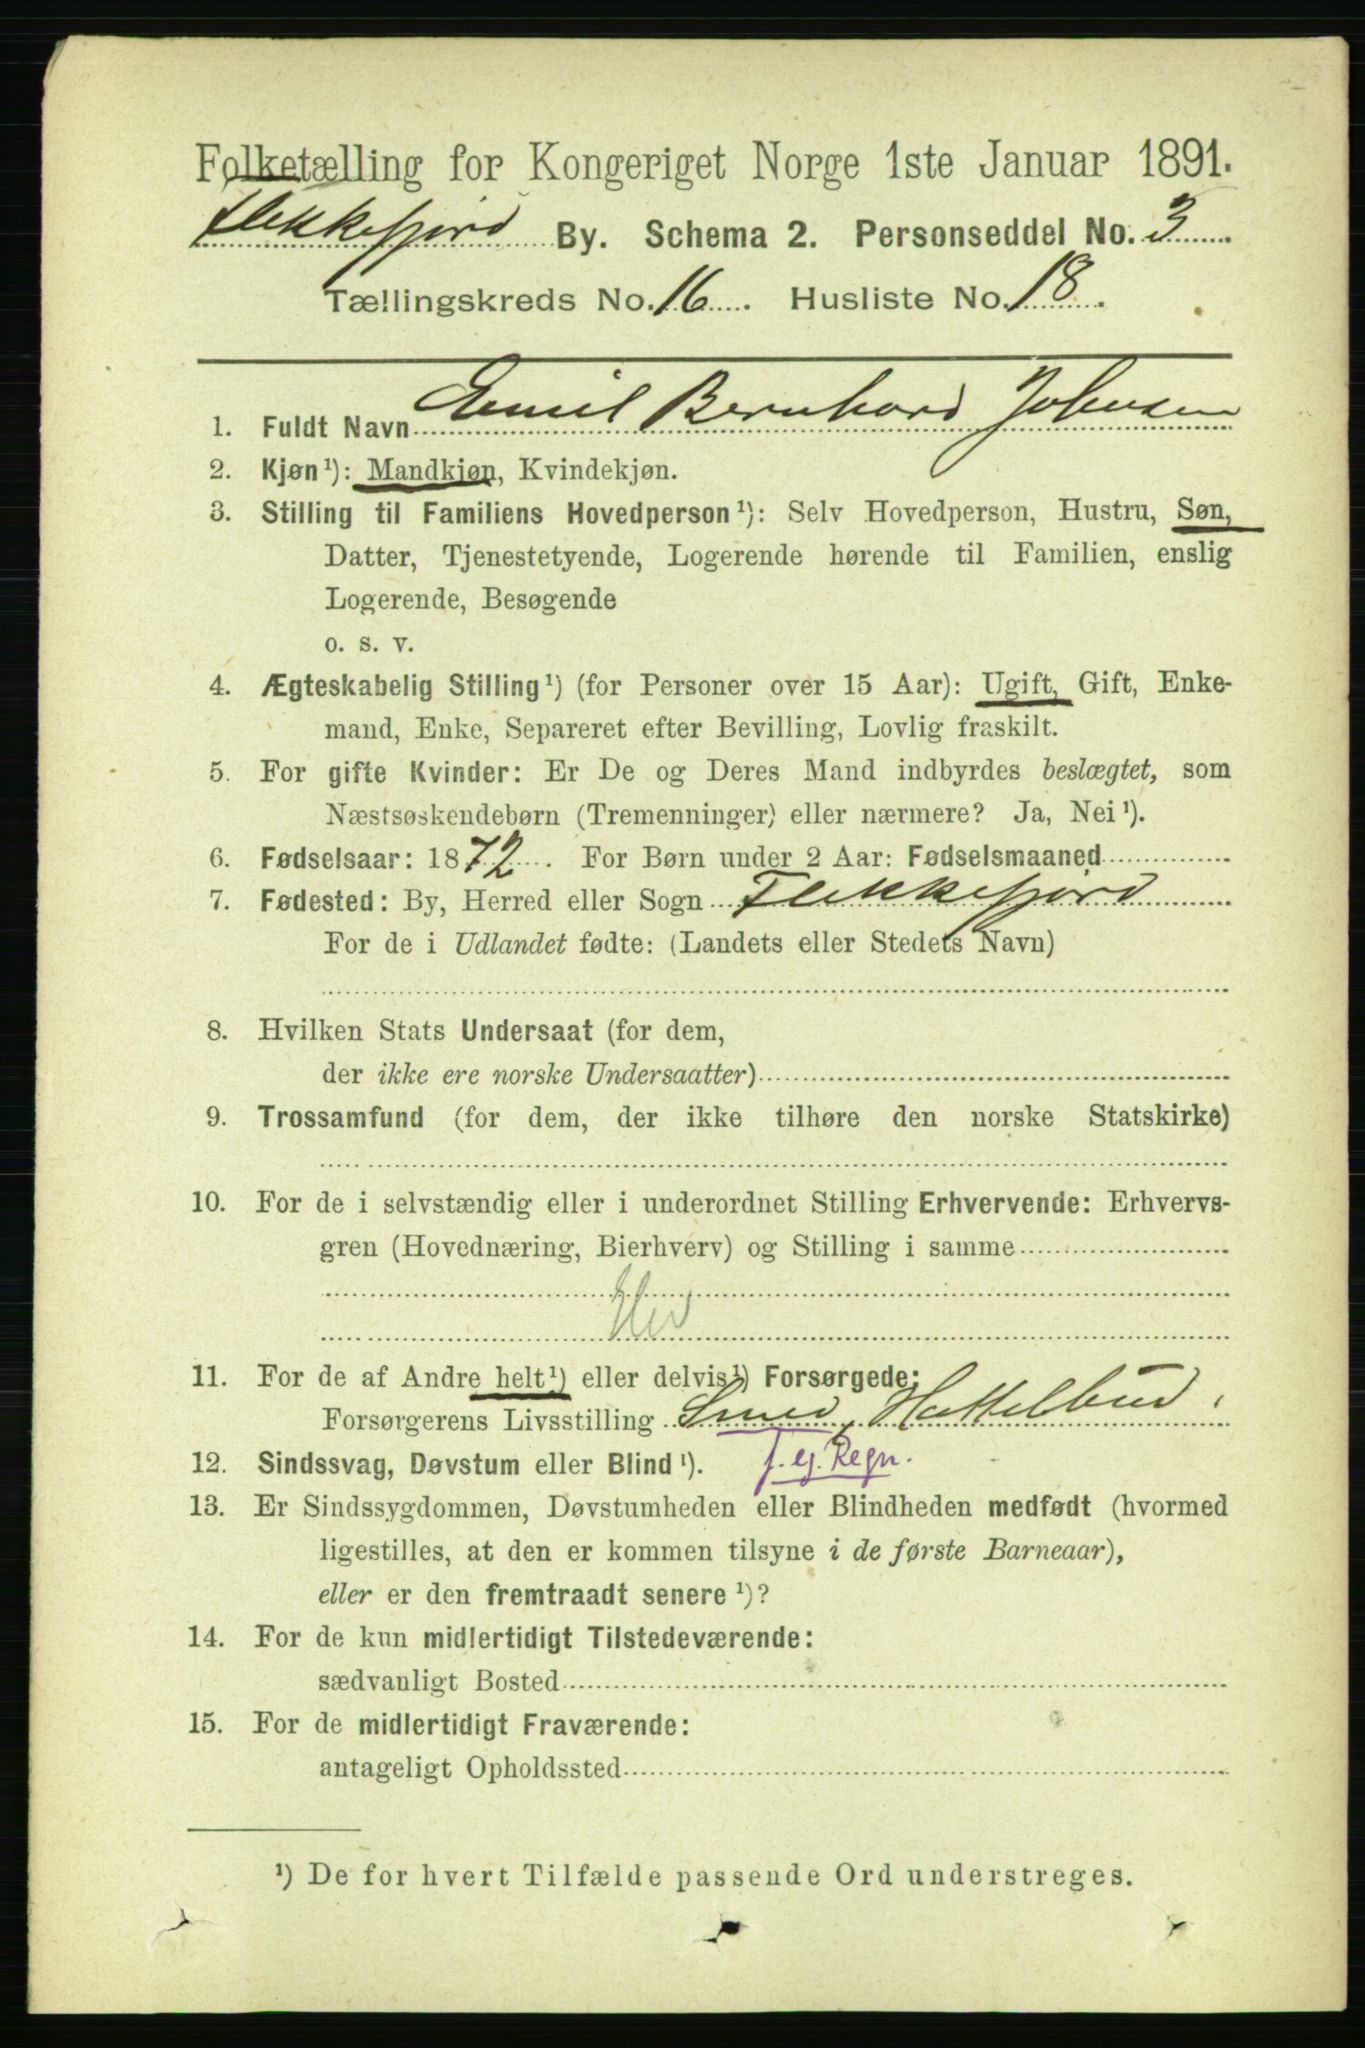 Folketælling for Kongeriget Norge 1ste Januar 1891.
Flekkefjord By. Schema 2. Personseddel No. 3
Tællingskreds No. 16. Husliste No. 18.
1. Fuldt Navn Emil Bernhard Johnsen
2. Kjøn¹): Mandkjøn, Kvindekjøn.
3. Stilling til Familiens Hovedperson¹): Selv Hovedperson, Hustru, Søn,
Datter, Tjenestetyende, Logerende hørende til Familien, enslig
Logerende, Besøgende
o. s. v.
4. Ægteskabelig Stilling¹) (for Personer over 15 Aar): Ugift, Gift, Enke-
mand, Enke, Separeret efter Bevilling, Lovlig fraskilt.
5. For gifte Kvinder: Er De og Deres Mand indbyrdes beslægtet, som
Næstsøskendebørn (Tremenninger) eller nærmere? Ja, Nei¹).
6. Fødselsaar: 1872. For Børn under 2 Aar: Fødselsmaaned
7. Fødested: By, Herred eller Sogn Flekkefjord
For de i Udlandet fødte: (Landets eller Stedets Navn)
8. Hvilken Stats Undersaat (for dem,
der ikke ere norske Undersaatter)
9. Trossamfund (for dem, der ikke tilhøre den norske Statskirke)
10. For de i selvstændig eller i underordnet Stilling Erhvervende: Erhvervs-
gren (Hovednæring, Bierhverv) og Stilling i samme
11. For de af Andre helt¹) eller delvis¹) Forsørgede:
Forsørgerens Livsstilling Smed,
12. Sindssvag, Døvstum eller Blind¹). f. eg. Regn.
13. Er Sindssygdommen, Døvstumheden eller Blindheden medfødt (hvormed
ligestilles, at den er kommen tilsyne i de første Barneaar),
eller er den fremtraadt senere¹)?
14. For de kun midlertidigt Tilstedeværende:
sædvanligt Bosted
15. For de midlertidigt Fraværende:
antageligt Opholdssted
¹) De for hvert Tilfælde passende Ord understreges.